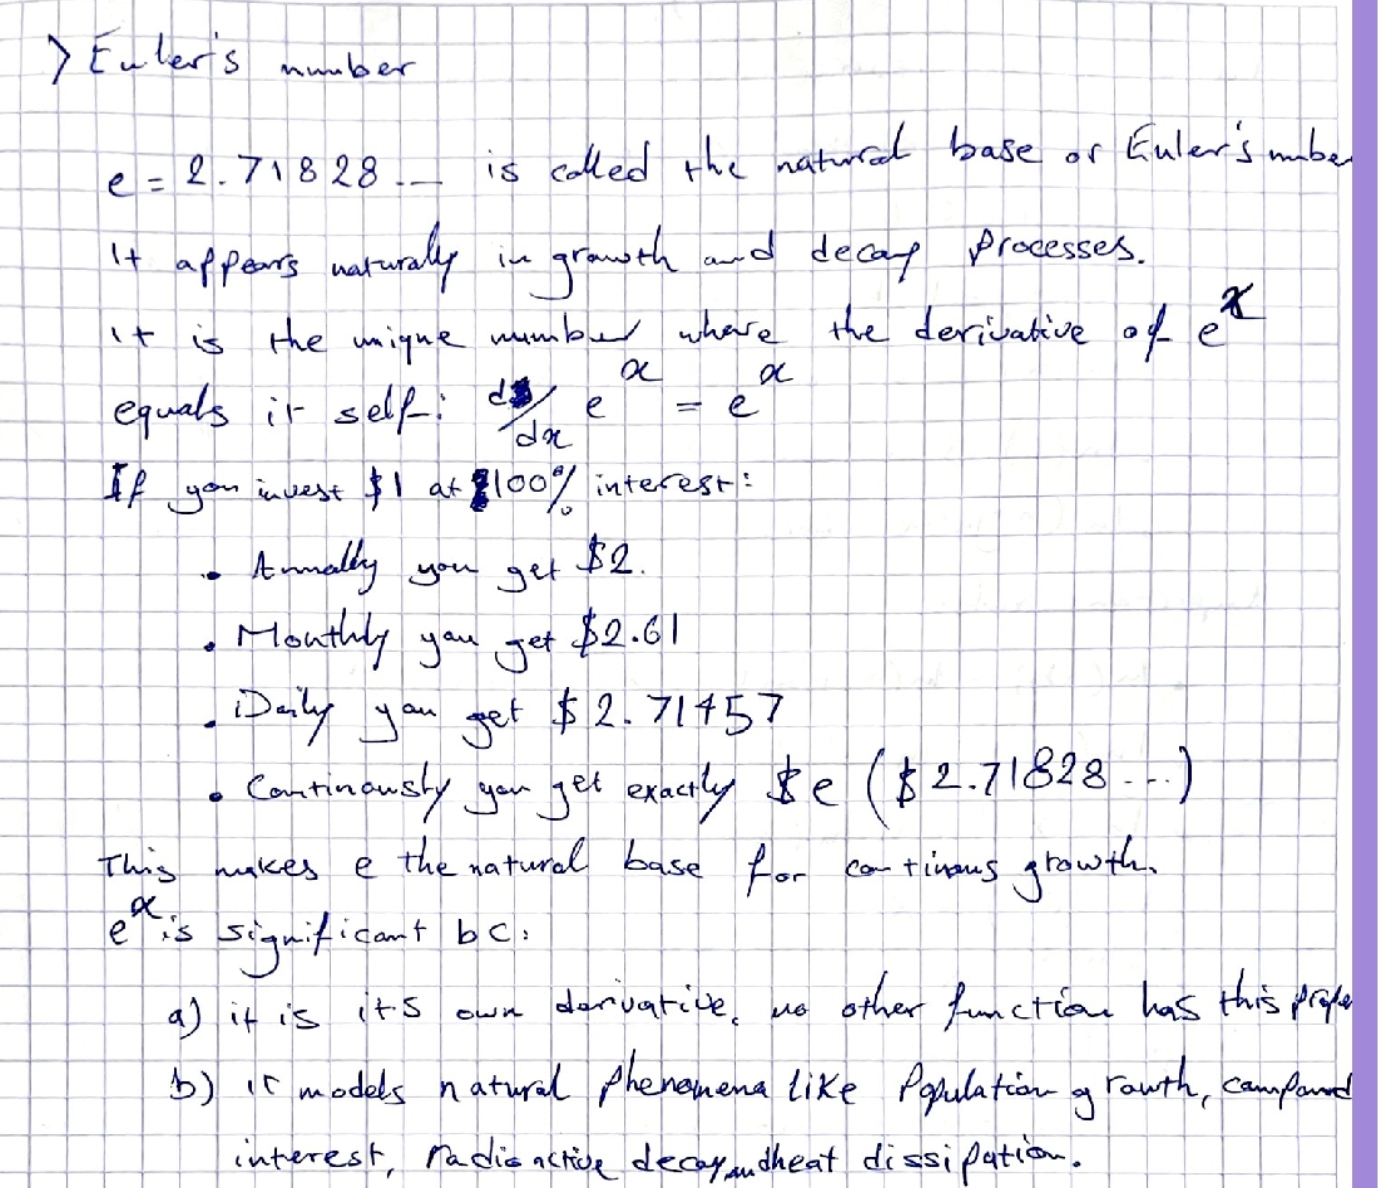 > Euler's number
e = 2.71828... is called the natural base or Euler's number
It appears naturaly in growth and decay processes.
it is the unique number where the derivative of e^x
equals it self: d/dx e^x = e^x
If you invest $1 at 100% interest:
• Annually you get $2.
• Monthly you get $2.61
• Daily you get $2.71457
• Continously you get exactly $e ($2.71828...)
This makes e the natural base for continous growth.
e^x is significant bc:
a) it is its own derivative, no other function has this
b) it models natural phenomena like population growth, compound
interest, radioactive decay and heat dissipation.